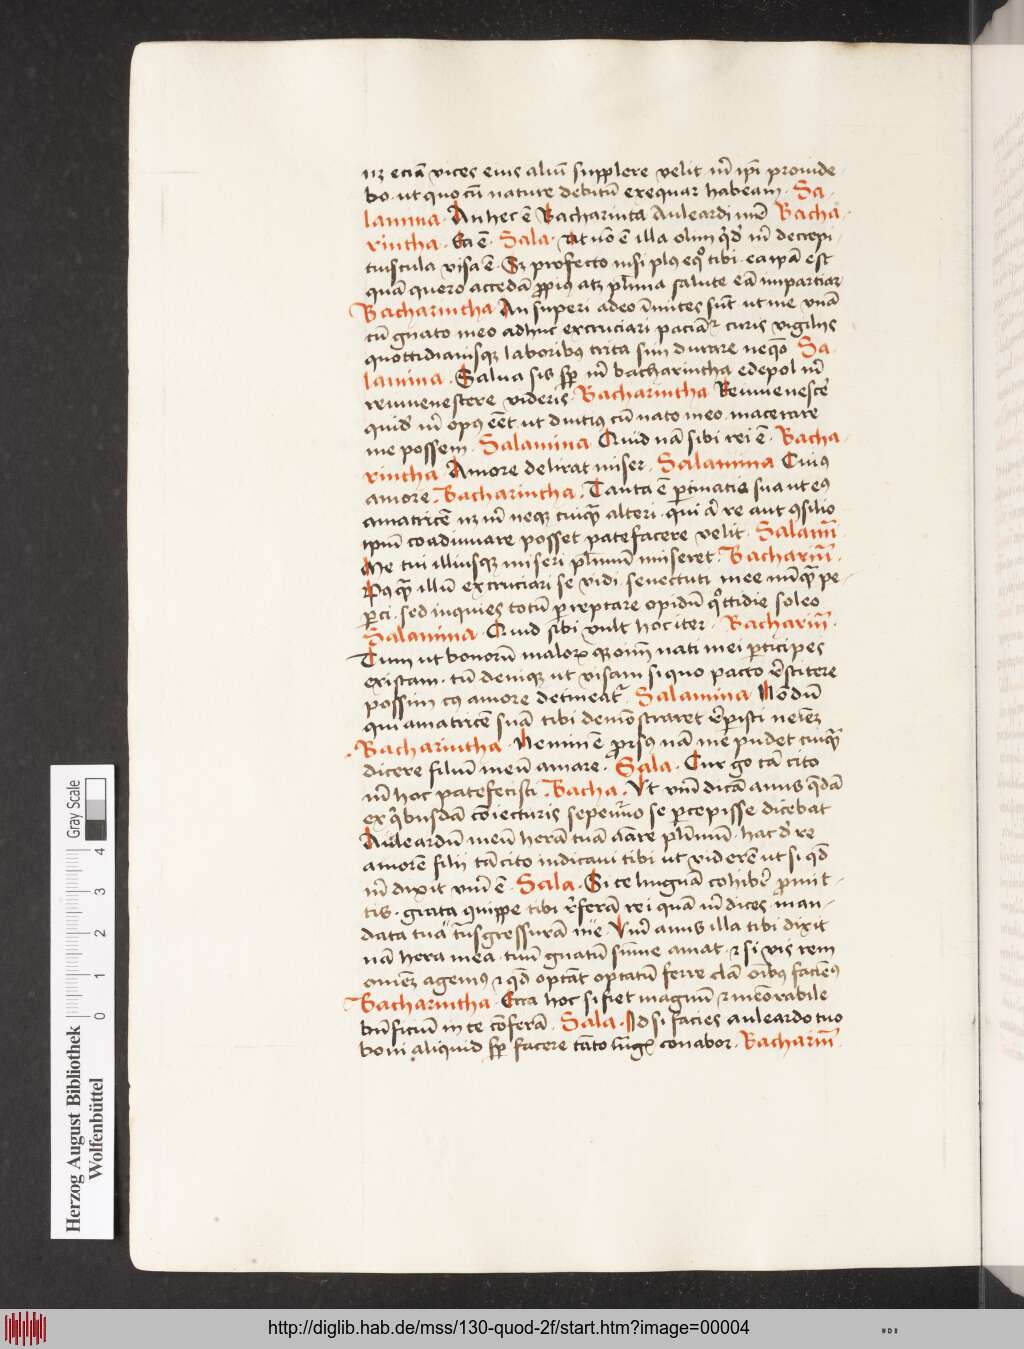 nꝫ eciā vices eius aliū supplere velit m̄ ip̄i prouide
bo · ut quocū nature debitū exequar habeam · Sa
lamina · An hec ē Bacharinta Auleardi mē Bacha
rintha · Ea ē · Sala · At nō ē illa olim q̄d m̄ decrepi
tuscula visa ē · Sꝫ profecto nisi plꝰ eqͦ tibi · ea ipā est
quā quero accedā ꝓpiꝰ atꝫ pl̄ima salute eā impartiar
Bacharintha An superi adeo īmites sūt ut me vnā
cū gnato meo adhuc excruciari paciāt᷑ curis vigilijs
quottidianisqꝫ laboribꝰ trita sim durare neqͦ Sa
lamina · Salua sis sꝑ m̄ bacharintha edepol m̄
reiuuenescere videris · Bacharintha Reiuuenescē
quid m̄ opꝰ eēt ut diutiꝰ cū nato meo macerare
me possem · Salamina Quid nā sibi rei ē · Bacha
rintha · Amore delirat miser · Salamina Cuiꝰ
amore · Bacharintha · Tanta ē ꝑtinatia sua ut eiꝰ
amatricē nꝫ m̄ neqꝫ cuiqͣ alteri · qui ā re aut ꝯsilio
ipm̄ coadiuuare posset patefacere velit · Salamī
Me tui illiusqꝫ miseri pl̄imū miseret · Bacharin̄ ·
Pꝰqͣ illū excruciari se vidi · senectuti mee nūqͣ pe
ꝑci · sed inquies totū ꝑreptare opidū qͦttidie soleo
Salamina · Quid sibi vult hoc iter · Bacharin̄ ·
Tum ut bonorū malorꝝ qꝫ om̄ nati mei ꝑticipes
existam · tū deniqꝫ ut visam si quo pacto r̄stitere
possim cꝰ amore detineat᷑ · Salamina Nōdū
qui amatricē suā tibi demōstraret r̄ꝑisti neīeꝫ
Bacharintha · Neminē ꝓrsꝰ nā me pudet cuiqͣ
dicere filiū meū amare · Sala · Cur go tā cito
m̄ hoc patefecisti · Bacha · Vt vnū dicā anus qͣdā
ex qͥbusdā cōiecturis sepenūo se ꝑcepisse dicebat
Auleardū meū herā tuā amare pl̄imū · hac d̄ re
amorē filij tā cito indicaui tibi ut viderē ut si qd̄
m̄ dixit vm̄ ē · Sala · Si te linguā cohibē ꝓmit
tis · grata quippe tibi r̄ferā rei quā m̄ dices man
data tua tn̄sgressurā me Vnū anus illa tibi dixit
nā hera mea · tuū gnatū sūme amat · ⁊ si vis rem
omēꝫ agemꝰ ⁊ qd̄ optāt optatū ferre clā oībꝰ faciēꝰ
Bacharintha · Ecca hoc si fiet magnū ⁊ meōrabile
bn̄ficiū in te cōferā · Sala · Id si facies auleardo tuo
boni aliquid sꝑ facere tāto magꝭ conabor · Bacharin̄ ·
Herzog August Bibliothek
Wolfenbüttel
0 1 2 3 4
Gray Scale
http://diglib.hab.de/mss/130-quod-2f/start.htm?image=00004